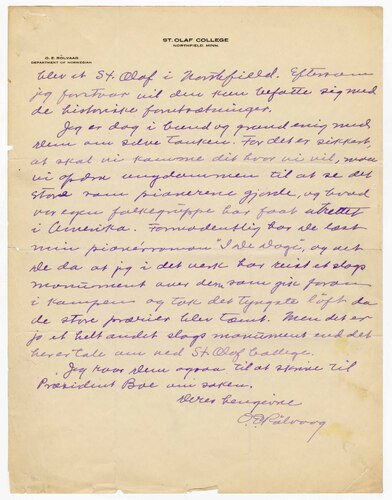 ST. OLAF COLLEGE
NORTHFIELD, MINN.
O. E. ROLVAAG
DEPARTMENT OF NORWEGIAN
blev et St. Olaf i Northfield. Eftersom
jeg forstaar vil den kun befatte sig med
de historiske foretninger.
Jeg er dog i bund og grund enig med
Dem om selve tanken. For det er sikkert,
at skal vi komme dit hvor vi vil, maa
vi opdra ungdommen til at se det
store som pionerene gjorde, og hvad
vor egen folkegruppe har faat utrettet
i Amerika. Formodentlig har De læst
min pionérroman "I De Dage", og vet
De da at jeg i det verk har reist et slags
monument over dem som gik foran
i kampen og tok det tyngste løft da
de store prærier blev tæmt. Men det er
jo et helt andet slags monument end det
her er tale om ved St. Olaf College.
Jeg raar Dem ogsaa til at skrive til
Præsident Boe om saken.
Deres hengivne
O. E. Rölvaag